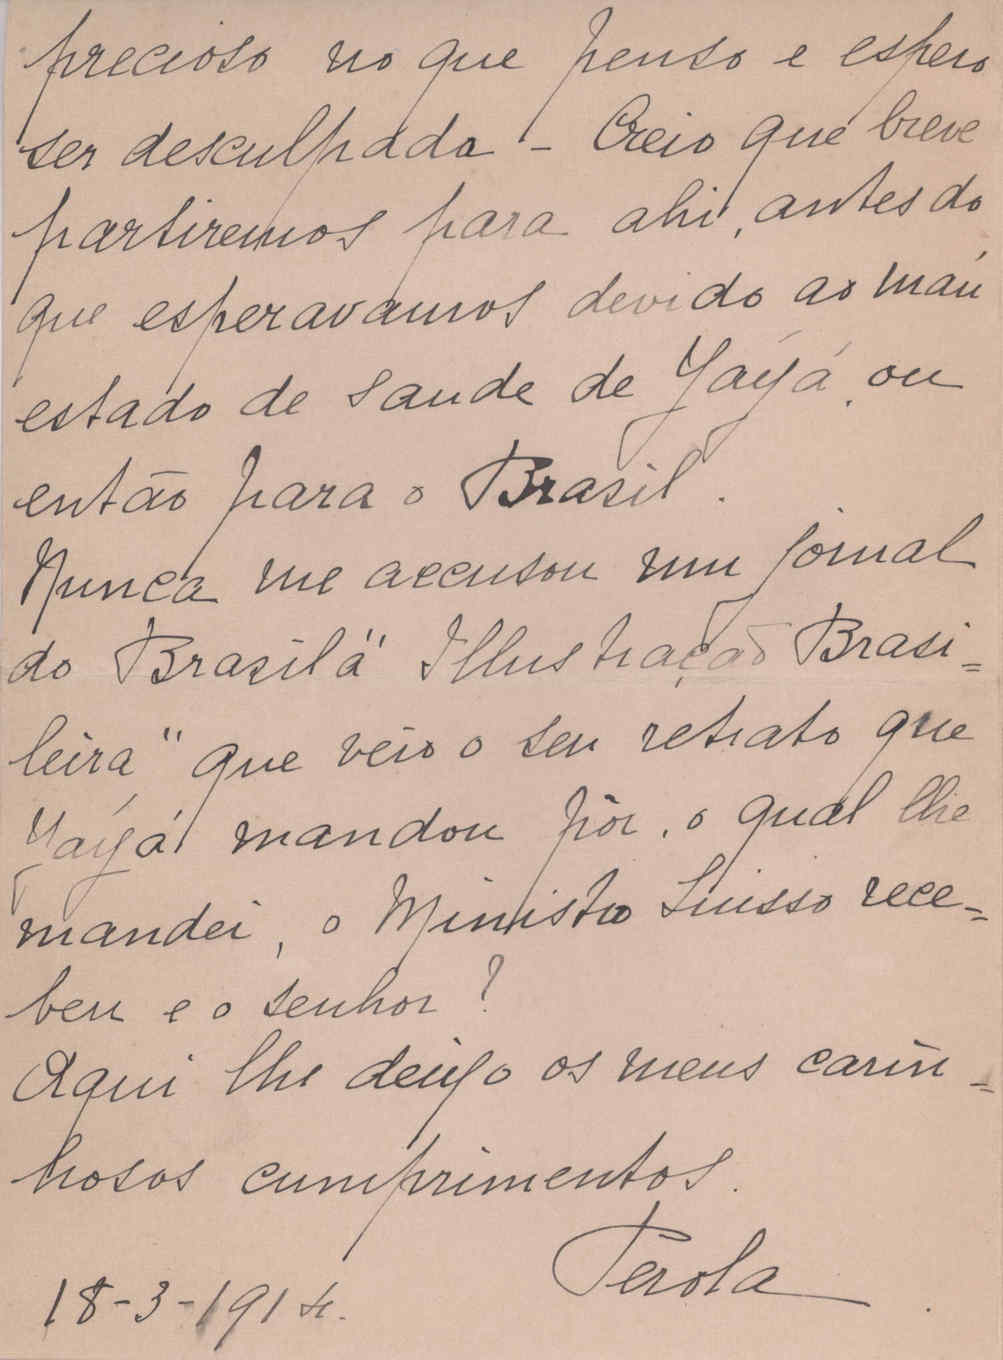 precioso no que penso e espero
ser desculpada - Creio que breve
partiremos para ahi, antes do
que esperavamos devido ao máu
estado de saude de Yáyá, ou
então para o Brasil.
Nunca me accusou um jornal
do Brasil a "Illustração Brasi=
leira" que veio o seu retrato que
Yáyá mandou pôr, o qual lhe
mandei, o Ministro Suisso rece=
beu e o senhor?
Aqui lhe deixo os meus carin=
hosos cumprimentos.
Perola
18-3-1914.